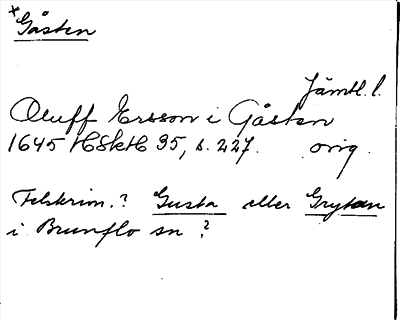 * Gåsten
Jämtl. l.
Oluff Ersson i Gåsten
1645 HSkH 95, s. 227. orig.
Felskrivn.? Gusta eller Grytan
i Brunflo sn?